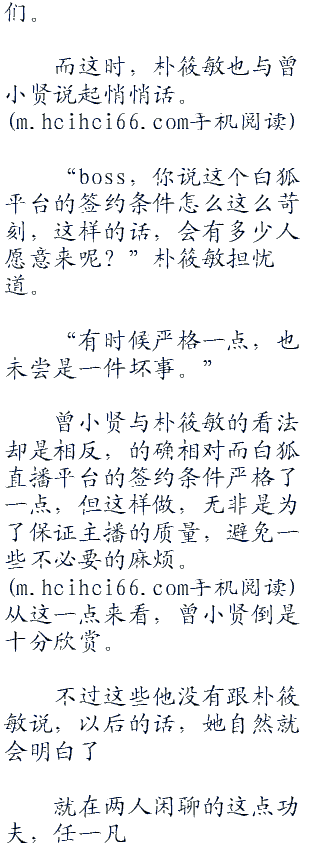 们。
而这时，朴筱敏也与曾
小贤说起悄悄话。
(m.hcihci66.com手机阅读)
“boss，你说这个白狐
平台的签约条件怎么这么苛
刻，这样的话，会有多少人
愿意来呢？”朴筱敏担忧
道。
“有时候严格一点，也
未尝是一件坏事。”
曾小贤与朴筱敏的看法
却是相反，的确相对而白狐
直播平台的签约条件严格了
一点，但这样做，无非是为
了保证主播的质量，避免一
些不必要的麻烦。
(m.hcihci66.com手机阅读)
从这一点来看，曾小贤倒是
十分欣赏。
不过这些他没有跟朴筱
敏说，以后的话，她自然就
会明白了
就在两人闲聊的这点功
夫，任一凡